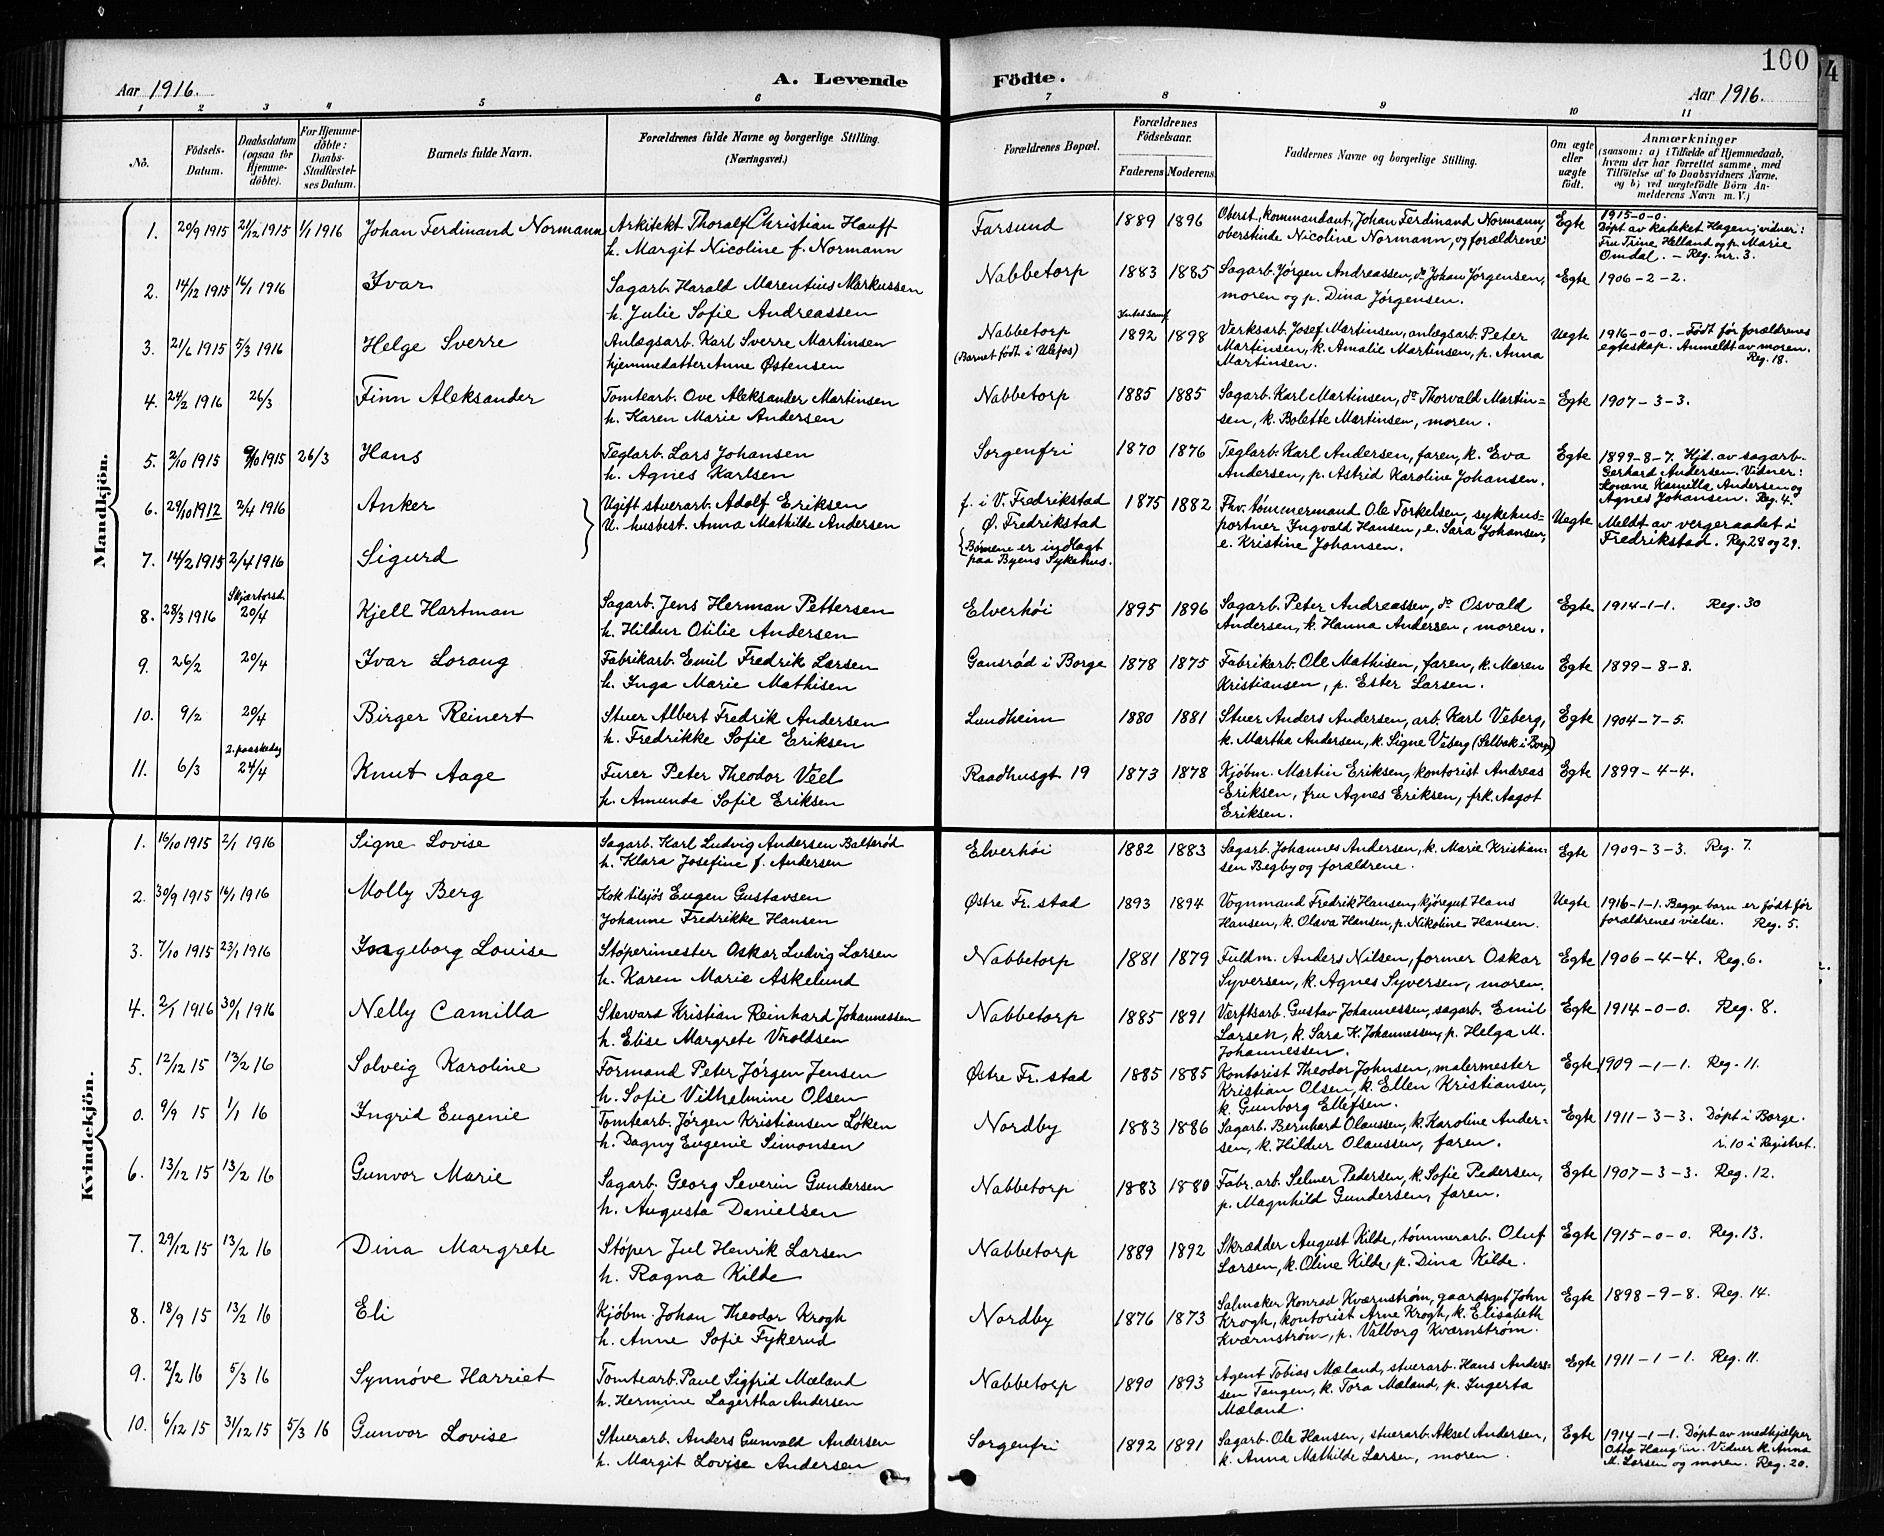 100
Aar 1916. A. Levende Födte. Aar 1916.
1 2 3 4 5 6 7 8 9 10 11
No. Födsels-Datum. Daabsdatum (ogsaa for Hjemmedöbte). For Hjemmedöbte: Daabs-Stadfæstelses Datum. Barnets fulde Navn. Forældrenes fulde Navne og borgerlige Stilling. (Næringsvei.) Forældrenes Bopæl. Forældrenes Födselsaar. Faderens Moderens. Faddernes Navne og borgerlige Stilling. Om ægte eller uægte födt. Anmærkninger (saasom: a) i Tilfælde af Hjemmedaab, hvem der har forrettet samme, med Tilföielse af to Daabsvidners Navne, og b) ved uægtefödte Börn Anmelderens Navn m. V.)
Mandkjön.
1. 20/9 1915 21/12 1915 1/1 1916 Johan Ferdinand Normann Arkitekt Thoralf Christian Hauff Farsund 1889 1896 Oberst, kommandant, Johan Ferdinand Normann, Egte 1915-0-0.
h. Margit Nicoline f. Normann oberstinde Nicoline Normann, og forældrene Döpt av kateket Hagen; vidner:
Fru Trine Helland og p. Marie
Omdal. – Reg. nr. 3.
2. 14/12 1915 16/1 1916 Ivar Sagarb. Harald Marentius Markussen Nabbetorp 1883 1885 Sagarb. Jørgen Andreassen, do Johan Jørgensen, Egte 1906-2-2.
h. Julie Sofie Andreassen moren og p. Dina Jørgensen.
3. 21/6 1915 5/3 1916 Helge Sverre Anlægsarb. Karl Sverre Martinsen Nabbetorp 1892 1898 Verksarb. Josef Martinsen, anlægsarb. Peter Uegte 1916-0-0. – Født før forældrenes
hjemmedatter Anne Østensen (Barnet født i Ulefos) Martinsen, k. Amalie Martinsen, p. Anna egteskap. Anmeldt av moren.
Martinsen. Reg. 18.
4. 24/2 1916 26/3 Finn Aleksander Tomtearb. Ove Aleksander Martinsen Nabbetorp 1885 1885 Sagarb. Karl Martinsen, do Thorvald Martin= Egte 1907-3-3.
h. Karen Marie Andersen sen, k. Bolette Martinsen, moren.
5. 2/10 1915 9/10 1915 26/3 Hans Teglarb. Lars Johansen Sorgenfri 1870 1876 Teglarb. Karl Andersen, faren, k. Eva Egte 1899-8-7. Hjd. av sagarb.
h. Agnes Karlsen Andersen, p. Astrid Karoline Johansen. Gerhard Andersen. Vidner:
Konene Kamilla Andersen og
Agnes Johansen. Reg. 4.
6. 29/10 1912 2/4 1916 Anker Ugift stuerarb. Adolf Eriksen f. i V. Fredrikstad 1875 1882 Fhv. tømmermand Ole Torkelsen, sykehus= Uegte Meldt av vergeraadet i
U. husbest. Anna Mathilde Andersen Ø. Fredrikstad portner Ingvald Hansen, e. Sara Johansen, Fredrikstad. Reg 28 og 29.
7. 14/2 1915 2/4 1916 Sigurd Børnene er indlagt paa Byens Sykehus. e. Kristine Johansen.
8. 28/3 1916 Skjærtorsd. 20/4 Kjell Hartman Sagarb. Jens Herman Pettersen Elverhöi 1895 1896 Sagarb. Peter Andreassen, do Osvald Egte 1914-1-1. Reg. 30
h. Hildur Otilie Andersen Andersen, k. Hanna Andersen, moren.
9. 26/2 20/4 Ivar Lorang Fabrikarb. Emil Fredrik Larsen Gansrød i Borge 1878 1875 Fabrikarb. Ole Mathisen, faren, k. Maren Egte 1899-8-8.
h. Inga Marie Mathisen Kristiansen, p. Ester Larsen.
10. 9/2 20/4 Birger Reinert Stuer Albert Fredrik Andersen Lundheim 1880 1881 Stuer Anders Andersen, arb. Karl Veberg, Egte 1904-7-5.
h. Fredrikke Sofie Eriksen k. Martha Andersen, k. Signe Veberg (Selbak i Borge)
11. 6/3 2. paaskedag 24/4 Knut Aage Furer Peter Theodor Veel Raadhusgt 19 1873 1878 Kjøbm. Martin Eriksen, kontorist Andreas Egte 1899-4-4.
h. Amunda Sofie Eriksen Eriksen, fru Agnes Eriksen, frk. Aagot
Eriksen.
Kvindekjön.
1. 16/10 1915 2/1 1916 Signe Lovise Sagarb. Karl Ludvig Andersen Balterød Elverhöi 1882 1883 Sagarb. Johannes Andersen, k. Marie Kristian= Egte 1909-3-3. Reg. 7.
h. Klara Josefine f. Andersen sen Begby og forældrene.
2. 30/9 1915 16/1 1916 Molly Berg Kok tilsjøs Eugen Gustavsen Østre Fr. stad 1893 1894 Vognmand Fredrik Hansen, kjøregut Hans Uegte 1916-1-1. Begge barn er født før
Johanne Fredrikke Hansen Hansen, k. Olava Hansen, p. Nikoline Hansen. forældrenes vielse. Reg. 5.
3. 7/10 1915 23/1 1916 Ingeborg Louise Støperimester Oskar Ludvig Larsen Nabbetorp 1881 1879 Fuldm. Anders Nilsen, former Oskar Egte 1906-4-4. Reg. 6.
h. Karen Marie Askelund Syversen, k. Agnes Syversen, moren.
4. 2/1 1916 30/1 1916 Nelly Camilla Steward Kristian Reinhard Johannessen Nabbetorp 1885 1891 Verftsarb. Gustav Johannessen, sagarb. Emil Egte 1914-0-0. Reg. 8.
h. Elise Margrete Vroldsen Larsen, k. Sara K. Johannessen, p. Helga M.
Johannessen.
5. 12/12 15 13/2 16 Solveig Karoline Formand Peter Jørgen Jensen Østre Fr. stad 1885 1885 Kontorist Theodor Johnsen, malermester Egte 1909-1-1. Reg. 11.
h. Sofie Vilhelmine Olsen Kristian Olsen, k. Ellen Kristiansen,
k. Gunborg Ellefsen.
0. 9/9 15 1/1 16 Ingrid Eugenie Tomtearb. Jørgen Kristiansen Løken Nordby 1883 1886 Sagarb. Bernhard Olaussen, k. Karoline Ander= Egte 1911-3-3. Døpt i Borge.
h. Dagny Eugenie Simonsen sen, k. Hildur Olaussen, faren. i. 10 i Registret.
6. 13/12 15 13/2 16 Gunvor Marie Sagarb. Georg Severin Gundersen Nabbetorp 1883 1880 Fabr. arb. Selmer Pedersen, k. Sofie Pedersen, Egte 1907-3-3. Reg. 12.
h. Augusta Danielsen p. Magnhild Gundersen, faren.
7. 29/12 15 13/2 16 Dina Margrete Støper Jul Henrik Larsen Nabbetorp 1889 1892 Skrædder August Kilde, tømmerarb. Oluf Egte 1915-0-0. Reg. 13.
h. Ragna Kilde Larsen, k. Oline Kilde, p. Dina Kilde.
8. 18/9 15 13/2 16 Eli Kjøbm. Johan Theodor Krogh Nordby 1876 1873 Salmaker Konrad Kværnstrøm, gaardsgut John Egte 1898-9-8. Reg. 14.
h. Anne Sofie Fykerud Krogh, kontorist Arne Krogh, k. Elisabeth
Kværnstrøm, p. Valborg Kværnstrøm.
9. 2/2 16 5/3 16 Synnøve Harriet Tomtearb. Paul Sigfrid Mæland Nabbetorp 1890 1893 Agent Tobias Mæland, stuerarb. Hans Anders= Egte 1911-1-1. Reg. 11.
h. Hermine Lagertha Andersen sen Tangen, k. Tora Mæland, p. Ingerta
Mæland.
10. 6/12 15 31/12 15 5/3 16 Gunvor Lovise Stuerarb. Anders Gunvald Andersen Sorgenfri 1892 1891 Sagarb. Ole Hansen, stuerarb. Aksel Andersen, Egte 1914-1-1. Döpt av medhjælper
h. Margit Lovise Andersen k. Anna Mathilde Larsen, moren. Otto Haugen. Vidner k. Anna
M. Larsen og moren. Reg. 20.